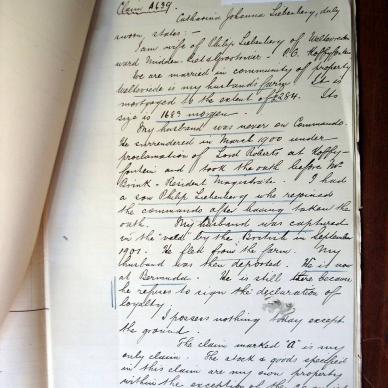 Claim A639.
Catharina Johanna Liebenberg, duly
sworn, states :-
I am wife of Philip Liebenberg of Weltevrede
ward Midden- P.O. Koffyfontein
We are married in community of property
Weltevrede is my husband's farm. It is
mortgaged to the extent of £284. Its
size is 1683 morgen.
My husband was never on Commando.
He surrendered in March 1900 under
proclamation of Lord Roberts at Koffy-
fontein and took the oath before Mr
Brink. Resident Magistrate. I had
a son Philip Liebenberg who rejoined
the commandos after having taken the
oath. My husband was captured
in the veld by the British in September
1901. He fled from the farm. My
husband was then deported. He is now
at Bermuda. He is still there because
he refuses to sign the declaration of
loyalty.
I possess nothing today except
the ground.
The claim marked "A" is my
only claim. The stock & goods specified
in this claim are my own property
within the exception of the